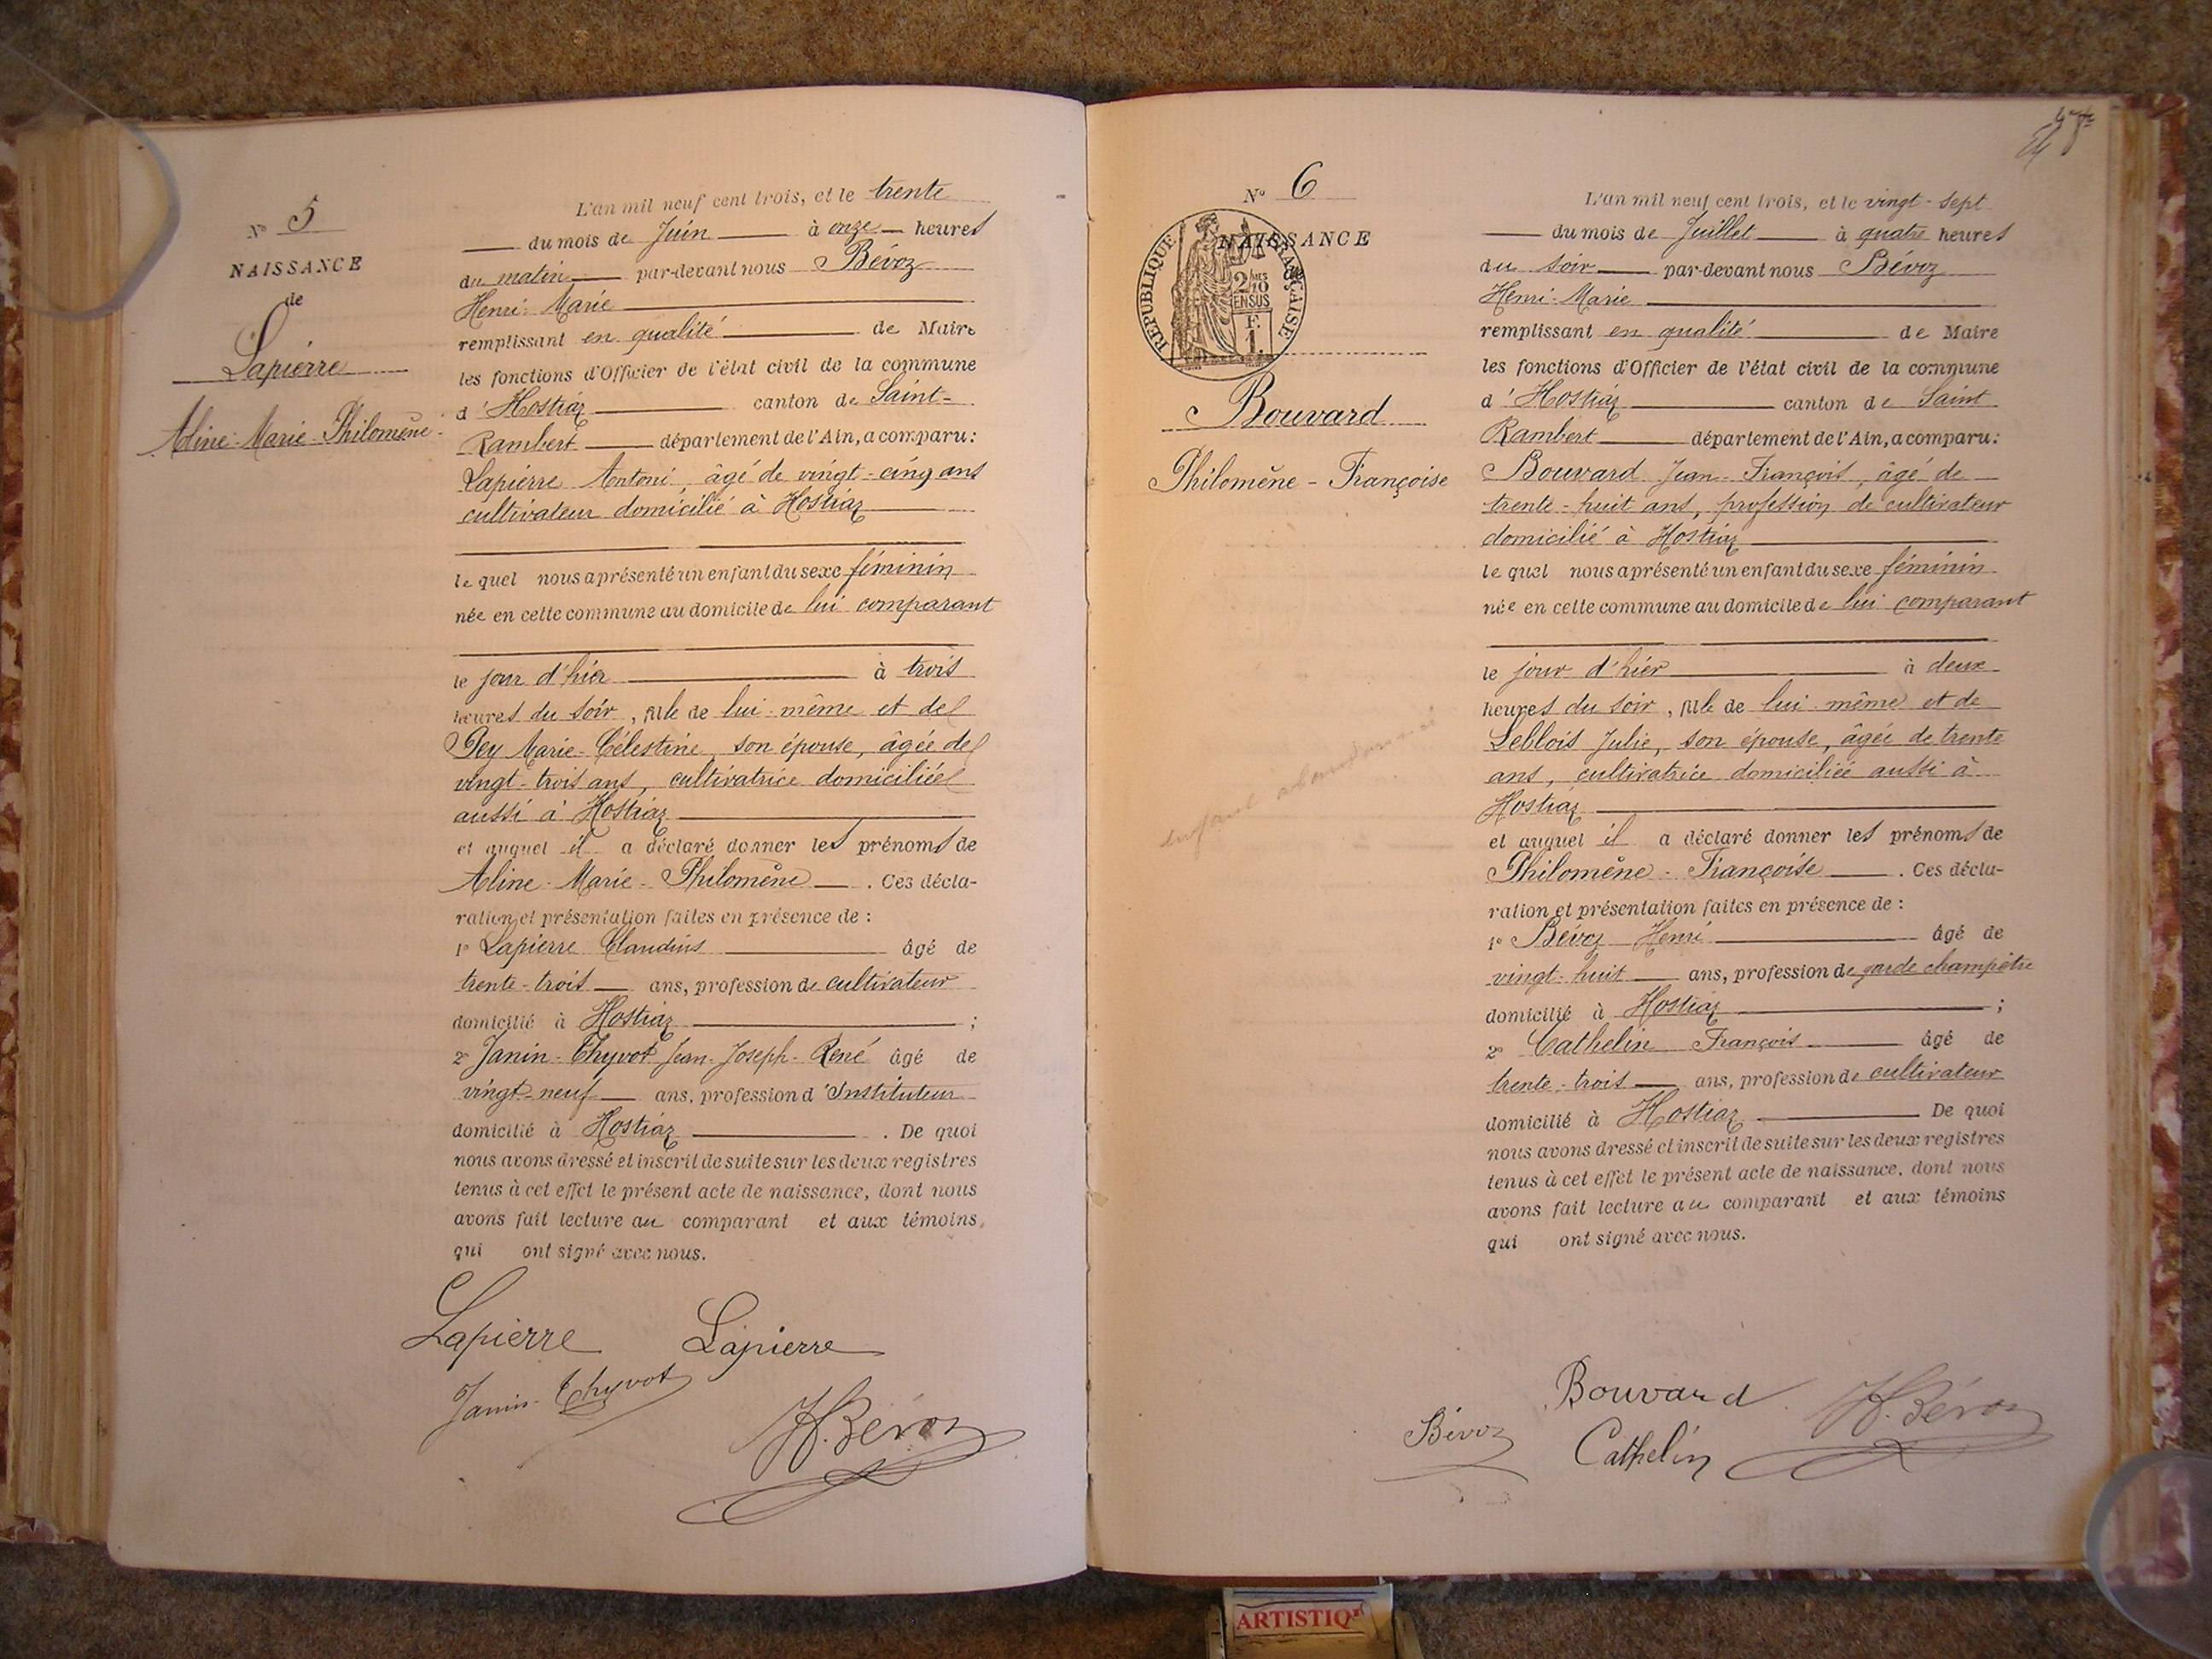 N° 5
NAISSANCE
de
Lapierre
Aline-Marie-Philomène
L'an mil neuf cent trois, et le trente
du mois de Juin à onze heures
du matin par-devant nous Bévoz
Henri-Marie
remplissant en qualité de Maire
les fonctions d'Officier de l'état civil de la commune
d'Hostiaz canton de Saint-
Rambert département de l'Ain, a comparu:
Lapierre Antoni, âgé de vingt-cinq ans
cultivateur domicilié à Hostiaz
le quel nous a présenté un enfant du sexe féminin
née en cette commune au domicile de lui comparant
le jour d'hier à trois
heures du soir, fille de lui-même et de
Pey Marie-Célestine, son épouse, âgée de
vingt-trois ans, cultivatrice domiciliée
aussi à Hostiaz
et auquel il a déclaré donner les prénoms de
Aline-Marie-Philomène. Ces décla-
ration et présentation faites en présence de :
1° Lapierre Claudius âgé de
trente-trois ans, profession de cultivateur
domicilié à Hostiaz ;
2° Janin-Thyvot Jean-Joseph-René âgé de
vingt-neuf ans, profession d'Instituteur
domicilié à Hostiaz. De quoi
nous avons dressé et inscrit de suite sur les deux registres
tenus à cet effet le présent acte de naissance, dont nous
avons fait lecture au comparant et aux témoins,
qui ont signé avec nous.
Lapierre Lapierre
Janin-Thyvot
H. Bévoz
N° 6
NAISSANCE
RÉPUBLIQUE FRANÇAISE
2/10
EN SUS
F.
1.
Bouvard
Philomène-Françoise
enfant abandonné
L'an mil neuf cent trois, et le vingt-sept
du mois de Juillet à quatre heures
du soir par-devant nous Bévoz
Henri-Marie
remplissant en qualité de Maire
les fonctions d'Officier de l'état civil de la commune
d'Hostiaz canton de Saint
Rambert département de l'Ain, a comparu:
Bouvard Jean-François, âgé de
trente-huit ans, profession de cultivateur
domicilié à Hostiaz
le quel nous a présenté un enfant du sexe féminin
née en cette commune au domicile de lui comparant
le jour d'hier à deux
heures du soir, fille de lui-même et de
Leblois Julie, son épouse, âgée de trente
ans, cultivatrice domiciliée aussi à
Hostiaz
et auquel il a déclaré donner les prénoms de
Philomène-Françoise. Ces décla-
ration et présentation faites en présence de :
1° Bévoz Henri âgé de
vingt-huit ans, profession de garde champêtre
domicilié à Hostiaz ;
2° Cathelin François âgé de
trente-trois ans, profession de cultivateur
domicilié à Hostiaz De quoi
nous avons dressé et inscrit de suite sur les deux registres
tenus à cet effet le présent acte de naissance, dont nous
avons fait lecture au comparant et aux témoins
qui ont signé avec nous.
Bouvard H. Bévoz
Bévoz Cathelin
ARTISTIQ